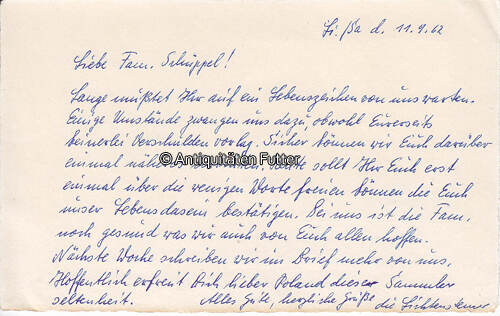 Li./Sa d. 11.9.62
Liebe Fam. Schuppel!
Lange mußtet Ihr auf ein Lebenszeichen von uns warten.
Einige Umstände zwangen uns dazu, obwohl Euerseits
keinerlei Verschulden vorlag. Sicher können wir Euch darüber
einmal näher Heute sollt Ihr Euch erst
© Antiquitäten Futter
einmal über die wenigen Worte freuen können die Euch
unser Lebensdasein bestätigen. Bei uns ist die Fam.
noch gesund was wir auch von Euch allen hoffen.
Nächste Woche schreiben wir im Brief mehr von uns.
Hoffentlich erfreut Dich lieber Roland diese Sammler
seltenheit. Alles Gute, herzliche Grüße die Lichtensteiner